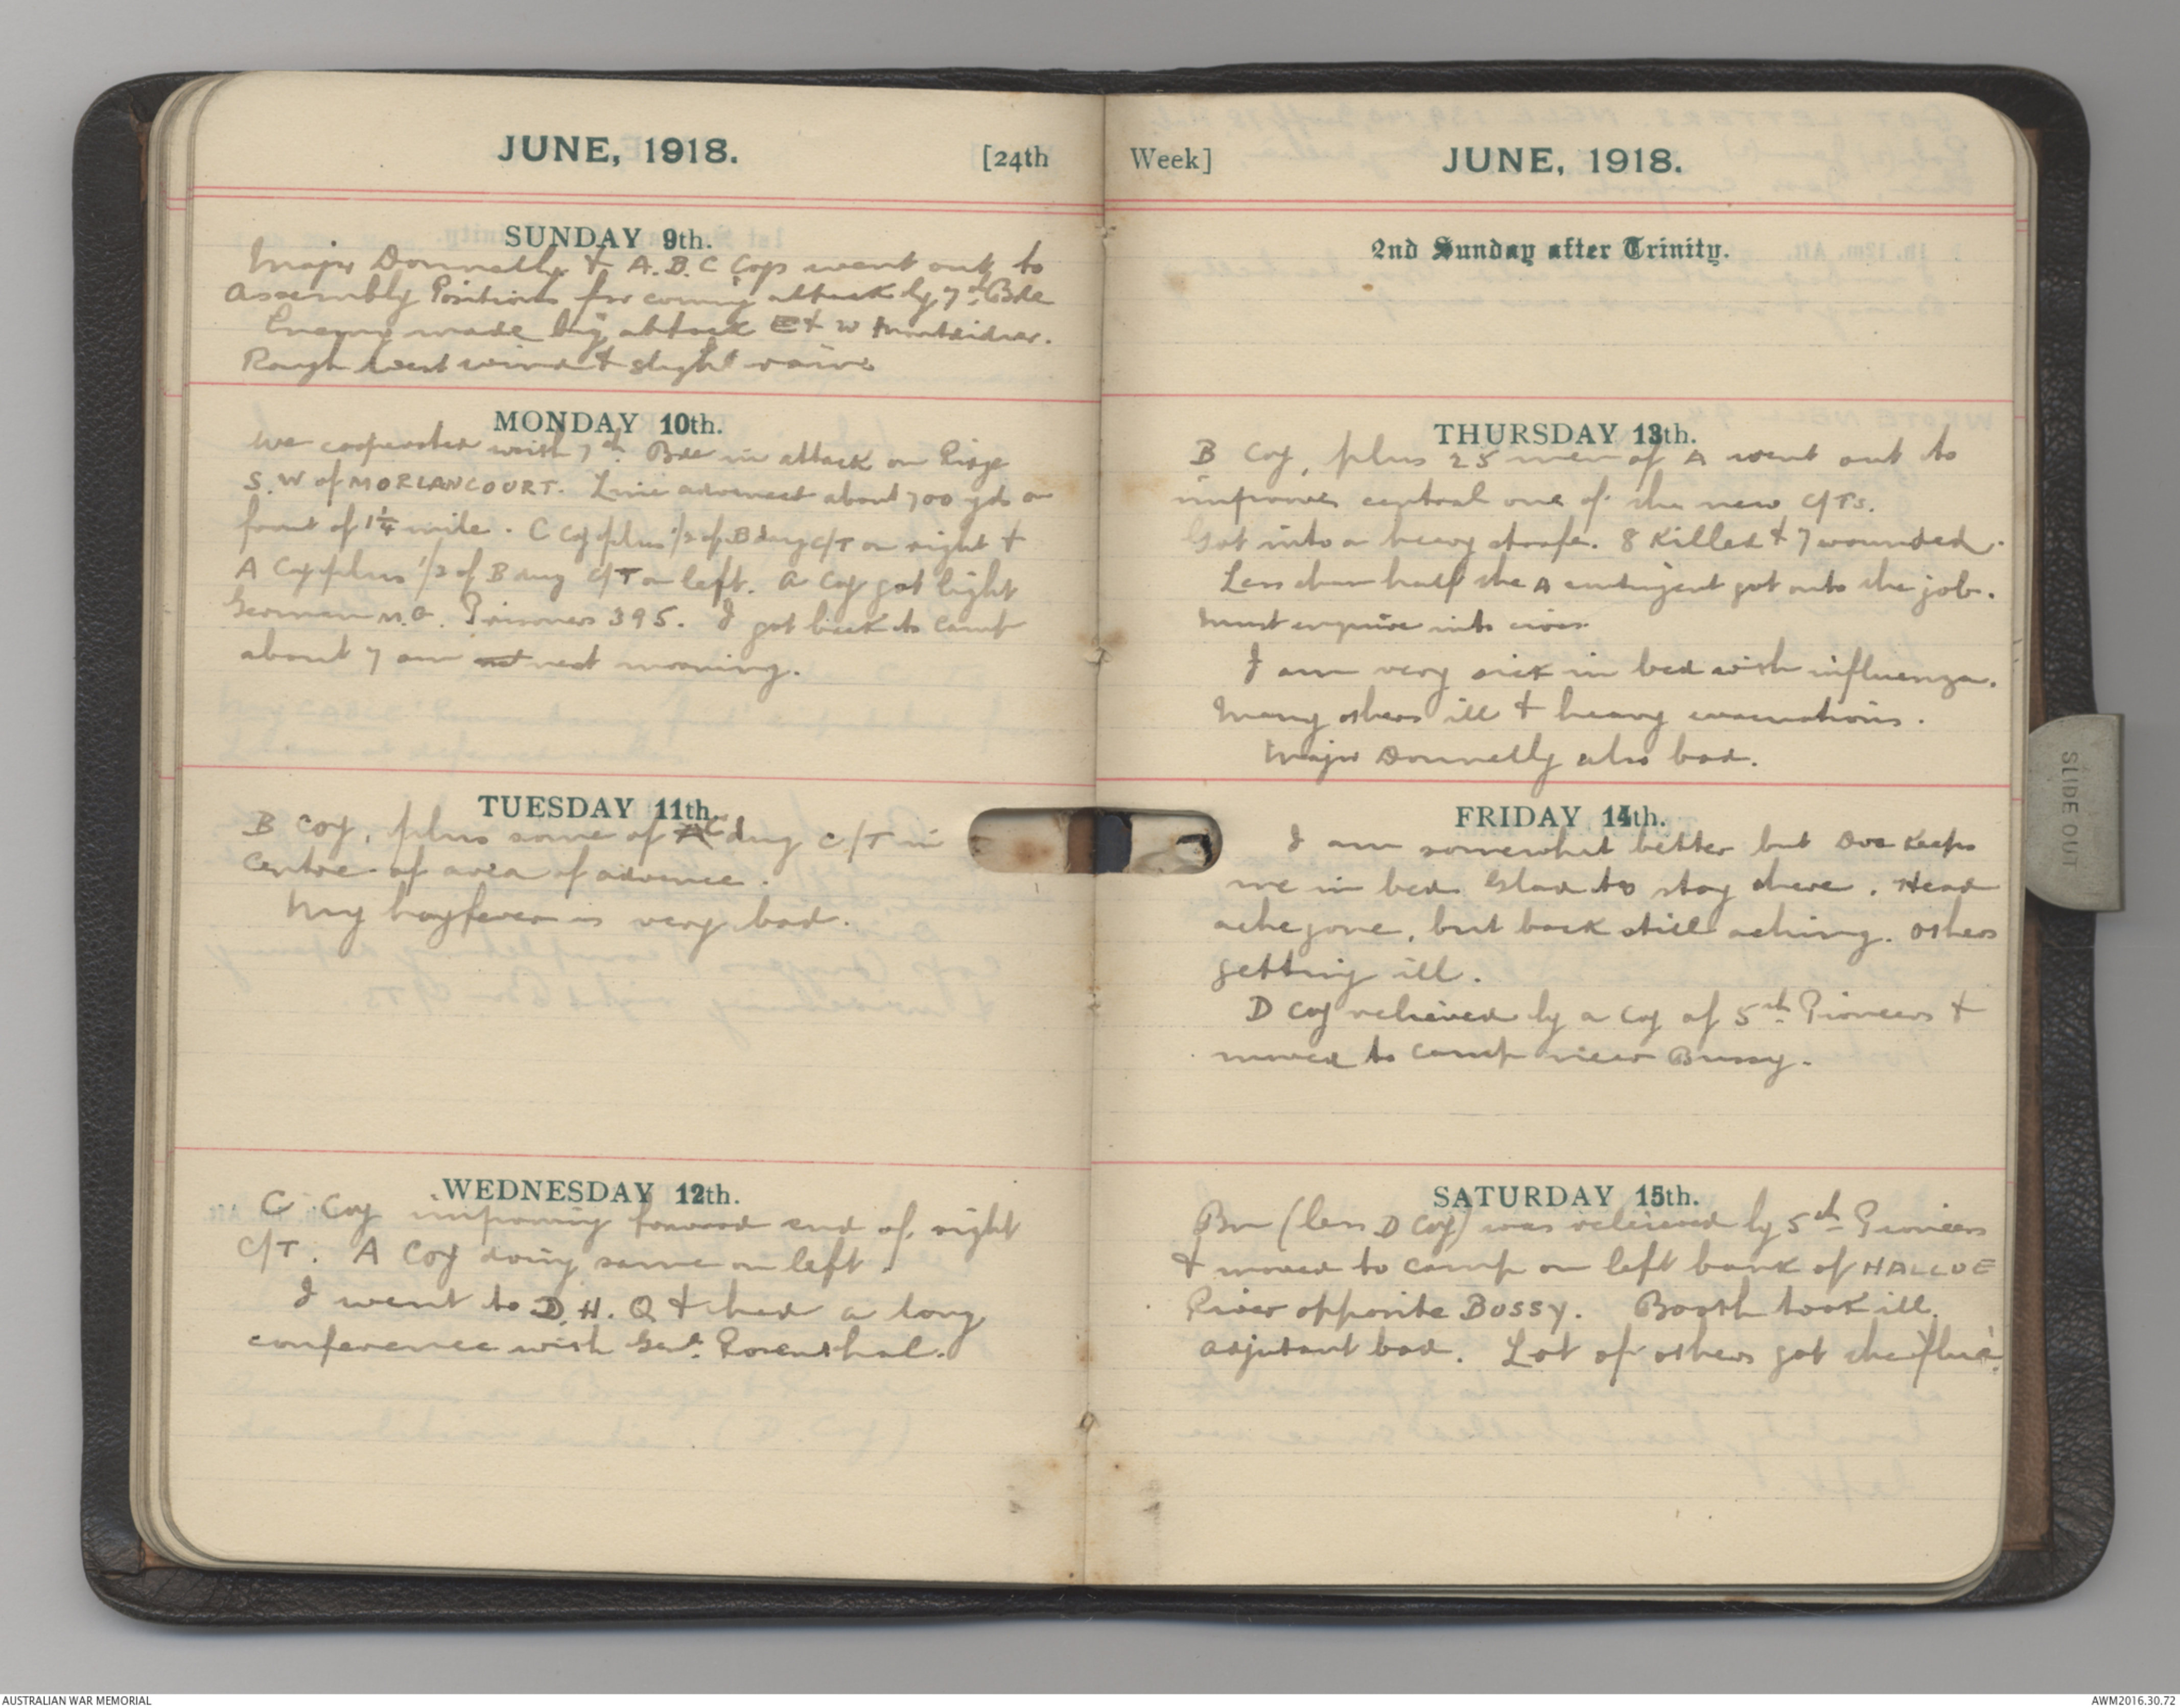 JUNE, 1918. [24th
SUNDAY 9th.
Major Donnelly & A.B.C Coys went out to
Assembly Positions for coming attack by 7th Bde
Enemy made big attack E & W Montdidier.
Rough West wind & slight rain
MONDAY 10th.
We cooperated with 7th Bde in attack on Ridge
S.W of MORLANCOURT. Line advanced about 700 yds on
front of 1¼ mile. C Coy plus 1/2 of B dug C/T on right &
A Coy plus 1/2 of B dug C/T on left. A Coy got light
German M.G. Prisoners 395. I got back to Camp
about 7 am next morning.
TUESDAY 11th.
B Coy, plus some of C dug C/T in
Centre of area of advance.
My hayfever is very bad.
WEDNESDAY 12th.
C Coy improving forward end of right
C/T. A Coy doing same on left.
I went to D.H.Q & had a long
conference with Genl. Rosenthal.
Week] JUNE, 1918.
2nd Sunday after Trinity.
THURSDAY 13th.
B Coy, plus 25 men of A went out to
improve central one of the new C/Ts.
Got into a heavy strafe. 8 Killed & 7 wounded.
Less than half the A contingent got onto the job.
Must enquire into
I am very sick in bed with influenza.
Many others ill & heavy evacuations.
Major Donnelly also bad.
FRIDAY 14th.
I am somewhat better but Doc Keeps
me in bed. Glad to stay there. Head
ache gone, but back still aching. Others
getting ill.
D Coy relieved by a Coy of 5th Pioneers &
moved to camp near Bussy.
SATURDAY 15th.
Bn (less D Coy) was relieved by 5th Pioneers
& moved to camp on left bank of HALLUE
River opposite BUSSY. Booth took ill.
Adjutant bad. Lot of others got the 'flue'.
SLIDE OUT
AUSTRALIAN WAR MEMORIAL
AWM2016.30.72